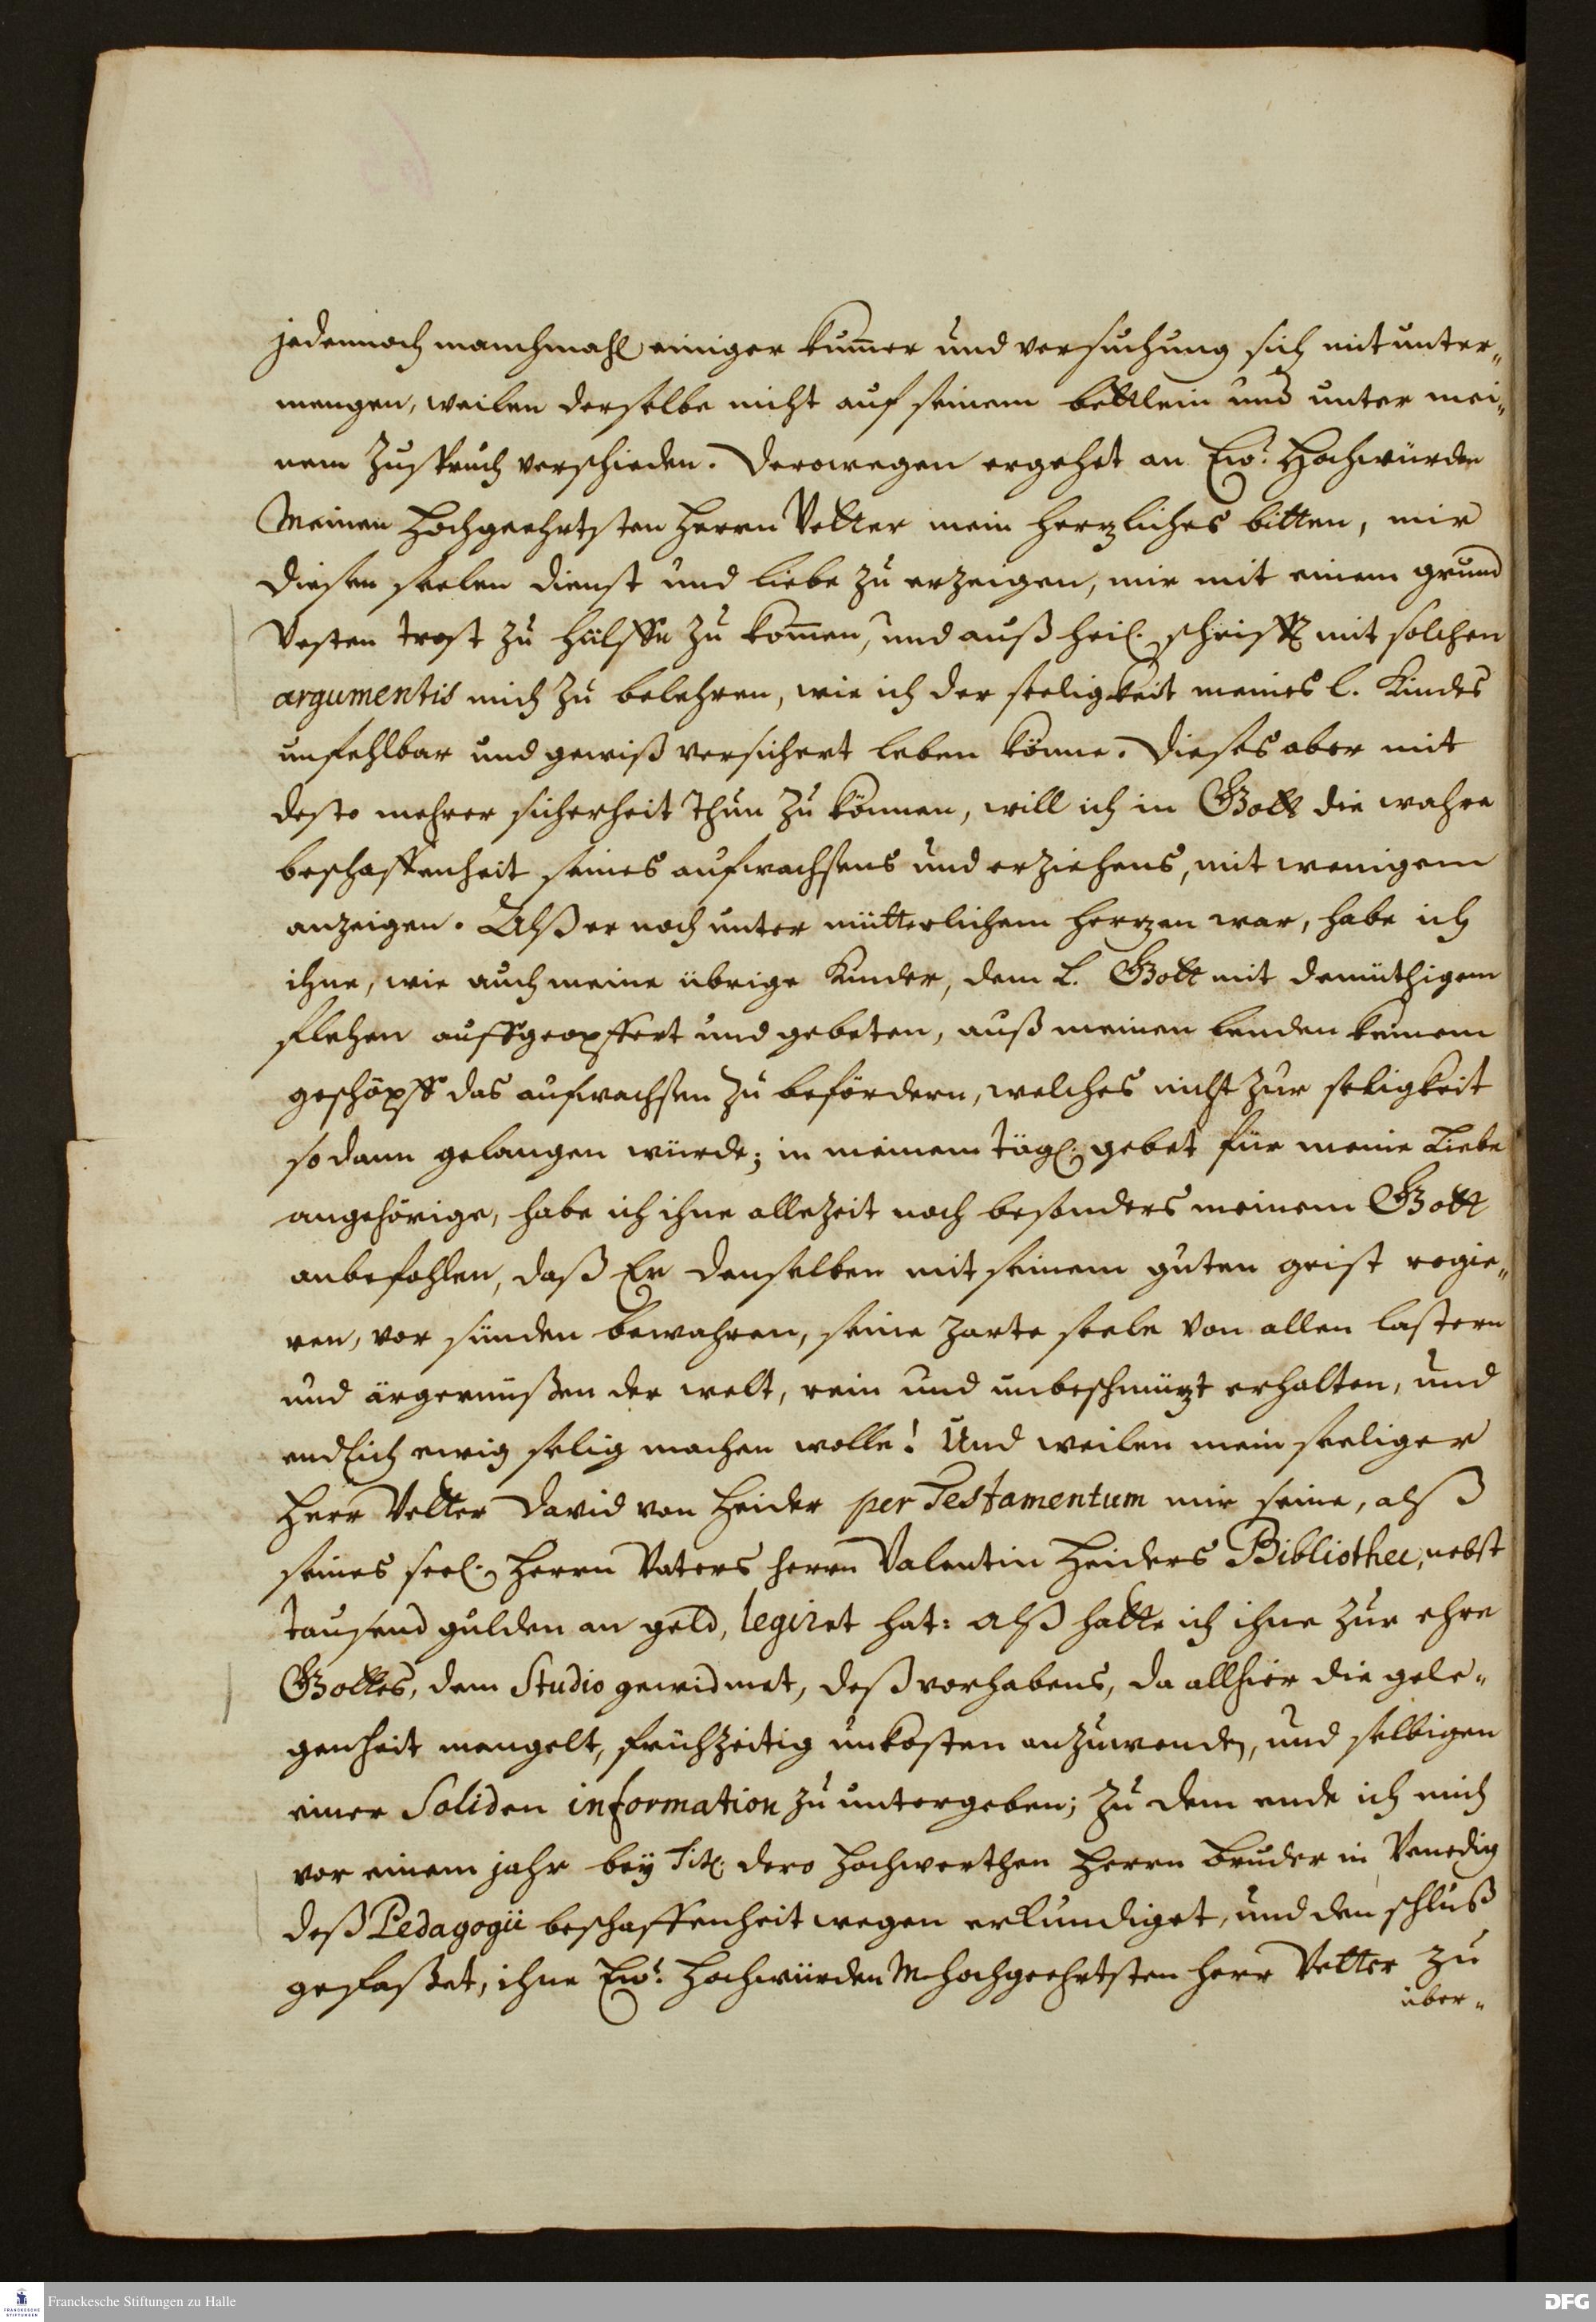 jedennoch manchmahl einiger kum̃er und versuchung sich mit unter„
mengen, weilen derselbe nicht auf seinem bettlein und unter mei„
nem Zuspruch verschieden. Derowegen ergehet an Ew.ʳ Hochwürden
Meinen Hochgeehrtsten Herrn Vetter mein herzliches bitten, mir
diesen seelen dienst und liebe zu erzeigen, mir mit einem grund
Vesten trost zu hülffe zu kom̃en, und auß heil. schrifft mit solchen
argumentis mich zu belehren, wie ich der seeligkeit meines l. Kindes
unfehlbar und gewiß versichert leben könne. Dieses aber mit
desto mehrer sicherheit thun zu können, will ich in Gott die wahre
beschaffenheit seines aufwachsens und erziehens, mit wenigem
anzeigen. Alß er noch unter mütterlichem herzen war, habe ich
ihne, wie auch meine übrige Kinder, dem l. Gott mit demüthigem
flehen auffgeopffert und gebeten, auß meinen lenden keinem
geschöpff das aufwachsen zu befördern, welches nicht zur seligkeit
so dann gelangen würde; in meinem tägl. gebet für meine Liebe
angehörige, habe ich ihne allezeit noch besonders meinem Gott
anbefohlen, daß Er denselben mit seinem guten geist regie„
ren, vor sünden bewahren, seine zarte seele von allen lastern
und ärgernußen der welt, rein und unbeschmüzt erhalten, und
endlich ewig selig machen wolle! Und weilen mein seeliger
Herr Vetter David von Heider per Testamentum mir seine, alß
seines seel. Herrn Vaters herrn Valentin Heiders Bibliothec, nebst
tausend gulden an geld, legiret hat: alß hatte ich ihne zur ehre
Gottes, dem Studio gewidmet, deß vorhabens, da allhier die gele-
genheit mangelt, frühzeitig unkosten anzuwenden, und selbigen
einer Soliden information zu untergeben; zu dem ende ich mich
vor einem jahr bey Tit. dero hochwerthen Herrn Bruder in Venedig
deß Pedagogii beschaffenheit wegen erkundiget, und den schluß
gefaßet, ihne Ew.ʳ Hochwürden M hochgeehrtsten Herr Vetter zu
über-
Franckesche Stiftungen zu Halle
DFG